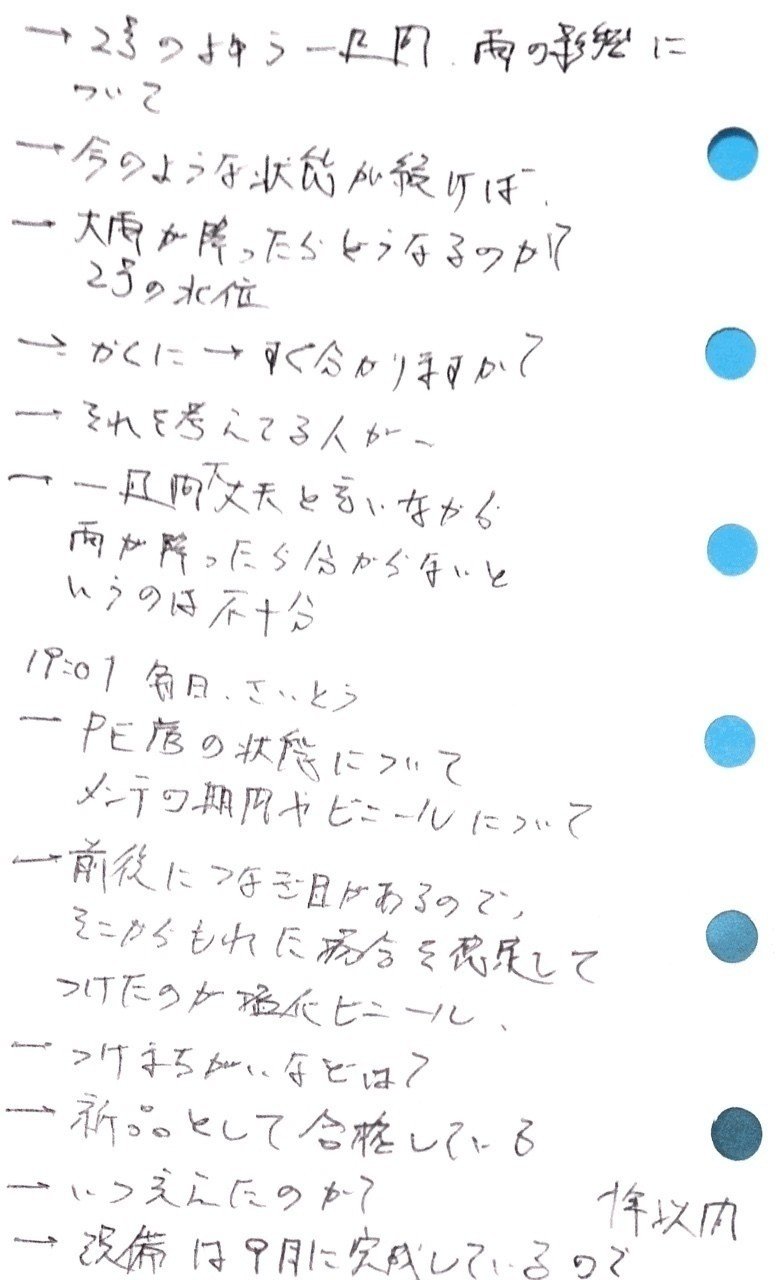 → 2号のよゆう一週間、雨の影響に
ついて
→ 今のような状態が続けば、
→ 大雨が降ったらどうなるのか?
2号の水位
→ かくに→すぐ分かりますか?
→ それを考えてる人が、
→ 一週間大丈夫と言いながら
雨が降ったら分からないと
いうのは不十分
19:07 毎日、さいとう
→ PE管の状態について
メンテの期間やビニールについて
→ 前後につなぎ目があるので、
そこからもれた場合を想定して
つけたのが塩化ビニール、
→ つけまちがいなどは?
→ 新品として合格している
→ いつ支えたのか?
1年以内
→ 設備は9月に完成しているので